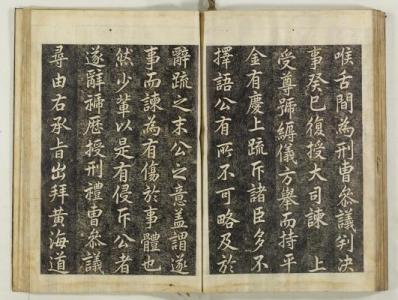 喉舌間為刑曹叅議判決
事癸巳復授大司諫 上
受尊號縟儀方舉而持平
金有慶上疏斥諸臣多不
擇語公有所不可略及於
辭疏之末公之意盖謂遂
事而諫為有傷於事體也
然少軰以是有侵斥公者
遂辭褫歷授刑禮曹叅議
尋由右承旨出拜黃海道